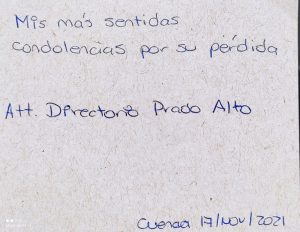 Mis más sentidas
condolencias por su pérdida
Att. Directorio Prado Alto
Cuenca 17/Nov/2021